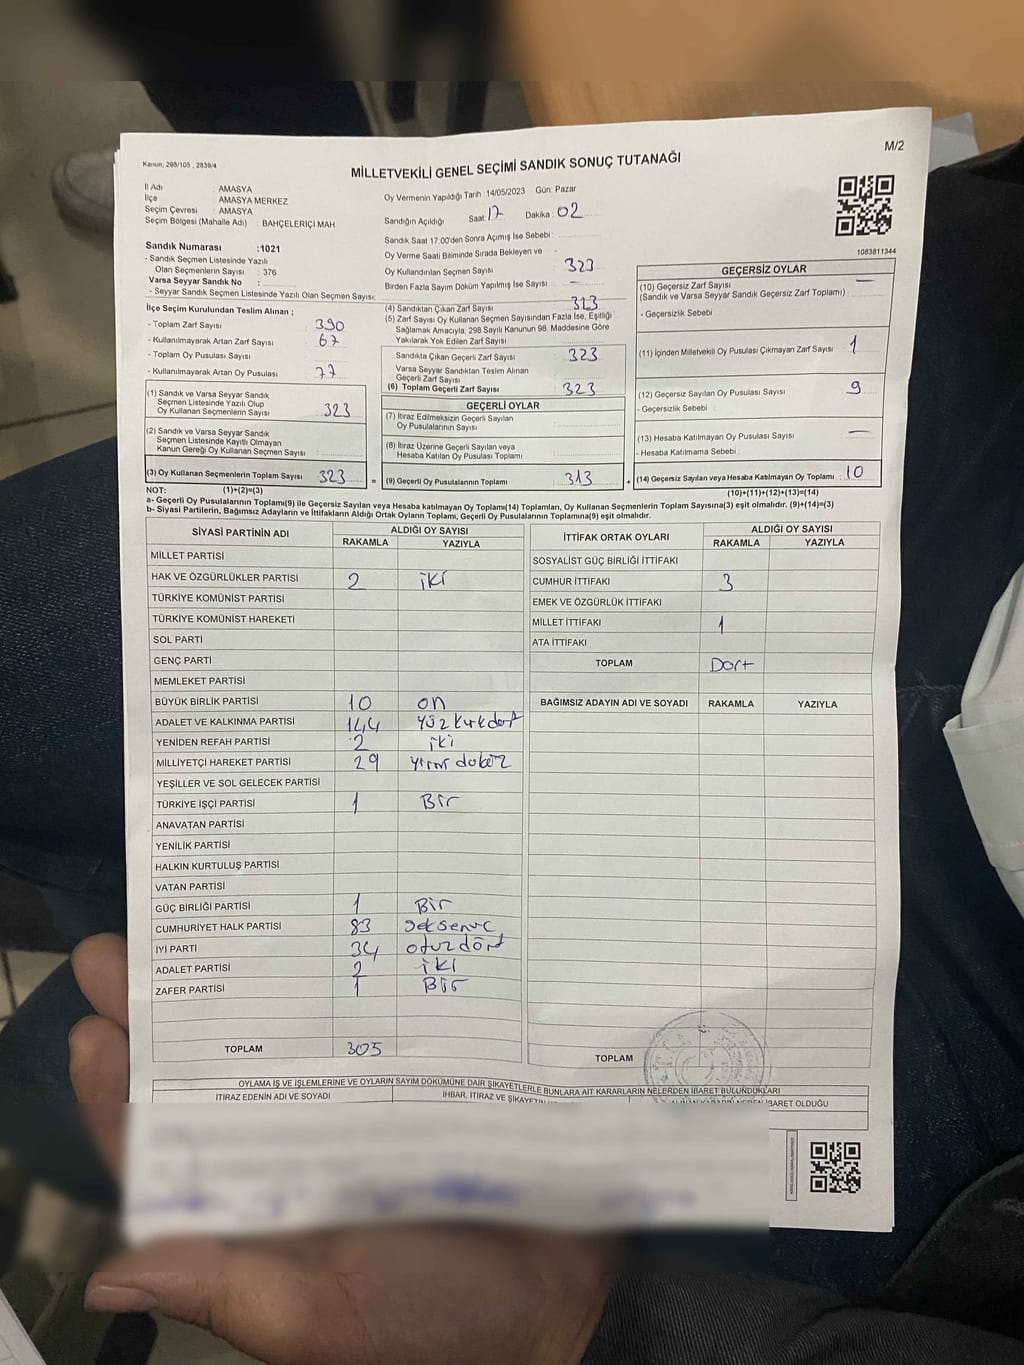 Kanun; 298/105 , 2839/4
M/2
MİLLETVEKİLİ GENEL SEÇİMİ SANDIK SONUÇ TUTANAĞI
İl Adı : AMASYA
İlçe : AMASYA MERKEZ
Seçim Çevresi : AMASYA
Seçim Bölgesi (Mahalle Adı) : BAHÇELERİÇİ MAH
Oy Vermenin Yapıldığı Tarih :14/05/2023 Gün: Pazar
Sandığın Açıldığı Saat: 17 Dakika: 02
Sandık Saat 17:00'den Sonra Açımış İse Sebebi :
Sandık Numarası :1021
- Sandık Seçmen Listesinde Yazılı
Olan Seçmenlerin Sayısı : 376
Varsa Seyyar Sandık No :
- Seyyar Sandık Seçmen Listesinde Yazılı Olan Seçmen Sayısı:
Oy Verme Saati Bitiminde Sırada Bekleyen ve
Oy Kullandırılan Seçmen Sayısı : 323
Birden Fazla Sayım Döküm Yapılmış İse Sayısı : —
1083811344
İlçe Seçim Kurulundan Teslim Alınan ;
- Toplam Zarf Sayısı : 390
- Kullanılmayarak Artan Zarf Sayısı : 67
- Toplam Oy Pusulası Sayısı :
- Kullanılmayarak Artan Oy Pusulası : 77
(1) Sandık ve Varsa Seyyar Sandık
Seçmen Listesinde Yazılı Olup
Oy Kullanan Seçmenlerin Sayısı : 323
(2) Sandık ve Varsa Seyyar Sandık
Seçmen Listesinde Kayıtlı Olmayan
Kanun Gereği Oy Kullanan Seçmen Sayısı :
(3) Oy Kullanan Seçmenlerin Toplam Sayısı : 323
(1)+(2)=(3)
(4) Sandıktan Çıkan Zarf Sayısı : 313
(5) Zarf Sayısı Oy Kullanan Seçmen Sayısından Fazla İse, Eşitliği
Sağlamak Amacıyla, 298 Sayılı Kanunun 98. Maddesine Göre
Yakılarak Yok Edilen Zarf Sayısı :
Sandıkta Çıkan Geçerli Zarf Sayısı : 323
Varsa Seyyar Sandıktan Teslim Alınan
Geçerli Zarf Sayısı :
(6) Toplam Geçerli Zarf Sayısı : 323
GEÇERLİ OYLAR
(7) İtiraz Edilmeksizin Geçerli Sayılan
Oy Pusulalarının Sayısı :
(8) İtiraz Üzerine Geçerli Sayılan veya
Hesaba Katılan Oy Pusulası Toplamı :
= (9) Geçerli Oy Pusulalarının Toplamı : 313
GEÇERSİZ OYLAR
(10) Geçersiz Zarf Sayısı : —
(Sandık ve Varsa Seyyar Sandık Geçersiz Zarf Toplamı) :
- Geçersizlik Sebebi :
(11) İçinden Milletvekili Oy Pusulası Çıkmayan Zarf Sayısı : 1
(12) Geçersiz Sayılan Oy Pusulası Sayısı : 9
- Geçersizlik Sebebi :
(13) Hesaba Katılmayan Oy Pusulası Sayısı : —
- Hesaba Katılmama Sebebi :
+ (14) Geçersiz Sayılan veya Hesaba Katılmayan Oy Toplamı : 10
(10)+(11)+(12)+(13)=(14)
NOT:
a- Geçerli Oy Pusulalarının Toplamı(9) ile Geçersiz Sayılan veya Hesaba katılmayan Oy Toplamı(14) Toplamları, Oy Kullanan Seçmenlerin Toplam Sayısına(3) eşit olmalıdır. (9)+(14)=(3)
b- Siyasi Partilerin, Bağımsız Adayların ve İttifakların Aldığı Ortak Oyların Toplamı, Geçerli Oy Pusulalarının Toplamına(9) eşit olmalıdır.
SİYASİ PARTİNİN ADI ALDIĞI OY SAYISI
RAKAMLA YAZIYLA
MİLLET PARTİSİ
HAK VE ÖZGÜRLÜKLER PARTİSİ 2 iki
TÜRKİYE KOMÜNİST PARTİSİ
TÜRKİYE KOMÜNİST HAREKETİ
SOL PARTİ
GENÇ PARTİ
MEMLEKET PARTİSİ
BÜYÜK BİRLİK PARTİSİ 10 on
ADALET VE KALKINMA PARTİSİ 144 yüzkırkdört
YENİDEN REFAH PARTİSİ 2 iki
MİLLİYETÇİ HAREKET PARTİSİ 29
YEŞİLLER VE SOL GELECEK PARTİSİ
TÜRKİYE İŞÇİ PARTİSİ 1 Bir
ANAVATAN PARTİSİ
YENİLİK PARTİSİ
HALKIN KURTULUŞ PARTİSİ
VATAN PARTİSİ
GÜÇ BİRLİĞİ PARTİSİ 1 Bir
CUMHURİYET HALK PARTİSİ 83 seksenüç
İYİ PARTİ 34 otuzdört
ADALET PARTİSİ 2 iki
ZAFER PARTİSİ 1 Bir
TOPLAM 305
İTTİFAK ORTAK OYLARI ALDIĞI OY SAYISI
RAKAMLA YAZIYLA
SOSYALİST GÜÇ BİRLİĞİ İTTİFAKI
CUMHUR İTTİFAKI 3
EMEK VE ÖZGÜRLÜK İTTİFAKI
MİLLET İTTİFAKI 1
ATA İTTİFAKI
TOPLAM Dört
BAĞIMSIZ ADAYIN ADI VE SOYADI RAKAMLA YAZIYLA
TOPLAM
OYLAMA İŞ VE İŞLEMLERİNE VE OYLARIN SAYIM DÖKÜMÜNE DAİR ŞİKAYETLERLE BUNLARA AİT KARARLARIN NELERDEN İBARET BULUNDUKLARI
İTİRAZ EDENİN ADI VE SOYADI
İHBAR, İTİRAZ VE
İBARET OLDUĞU